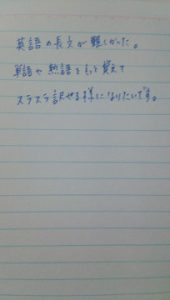 英語の長文が難しかった。
単語や熟語をもっと覚えて
スラスラ訳せる様になりたいです。